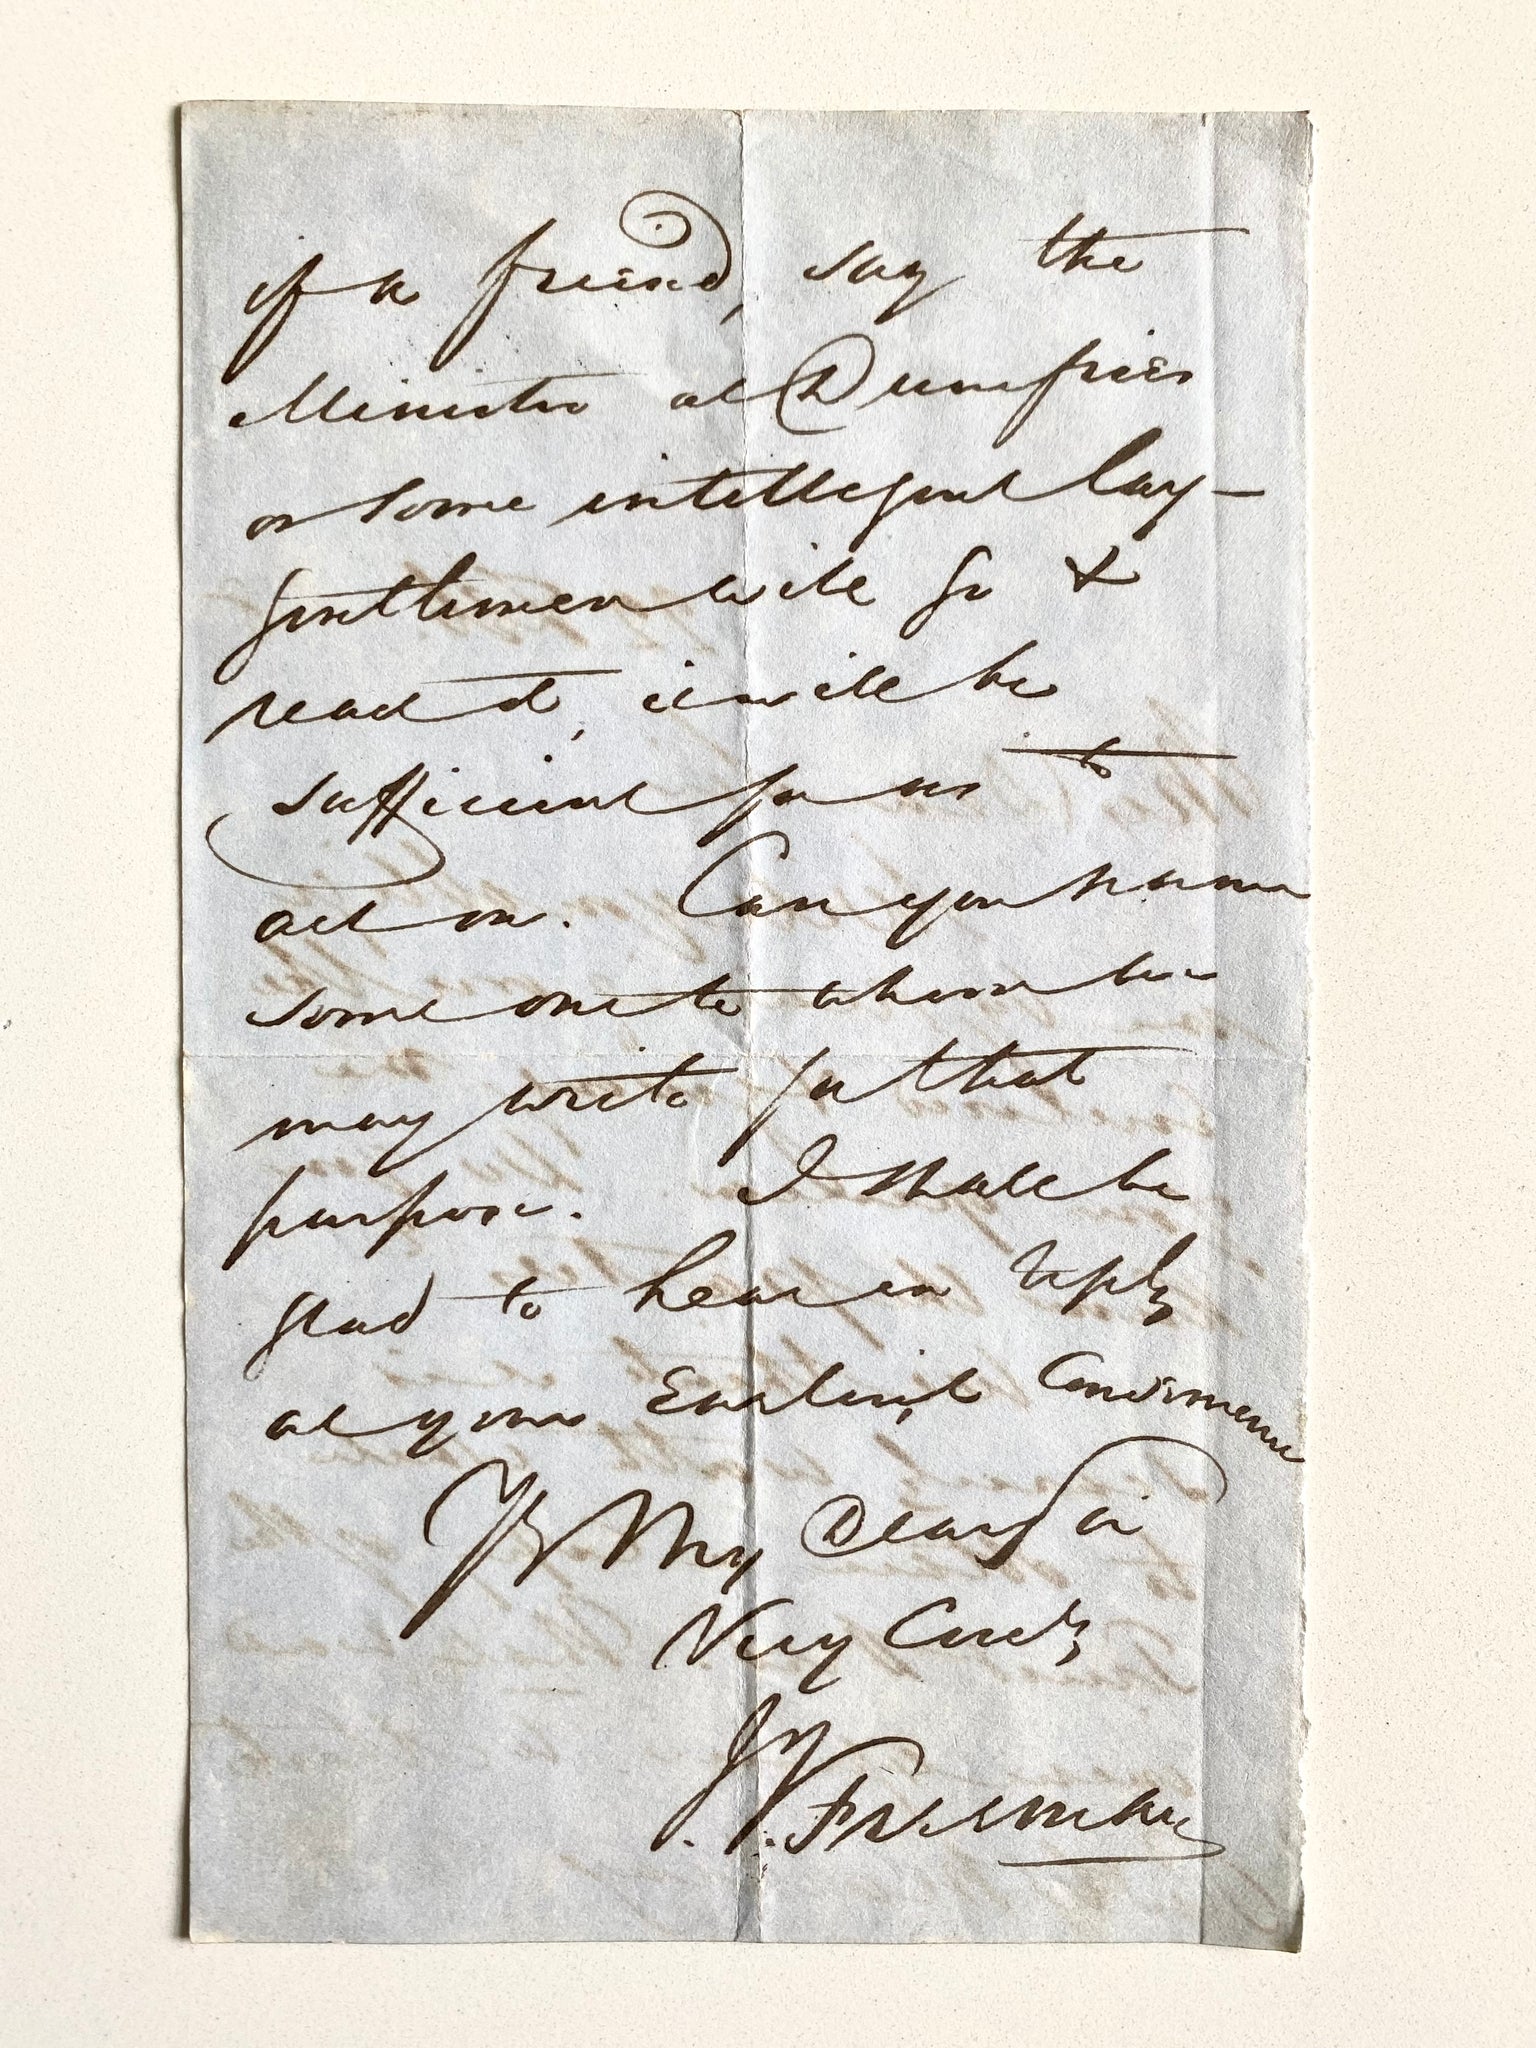 if a friend, say the
Minister at Dumfries
or some intelligent lay-
gentlemen will go &
read it, it will be
sufficient for us to
act on. Can you name
some one to whom we
may write for that
purpose. I shall be
glad to hear in reply
at your Earliest Convenience
My Dear Sir
Very Cordy
J. J. Freeman